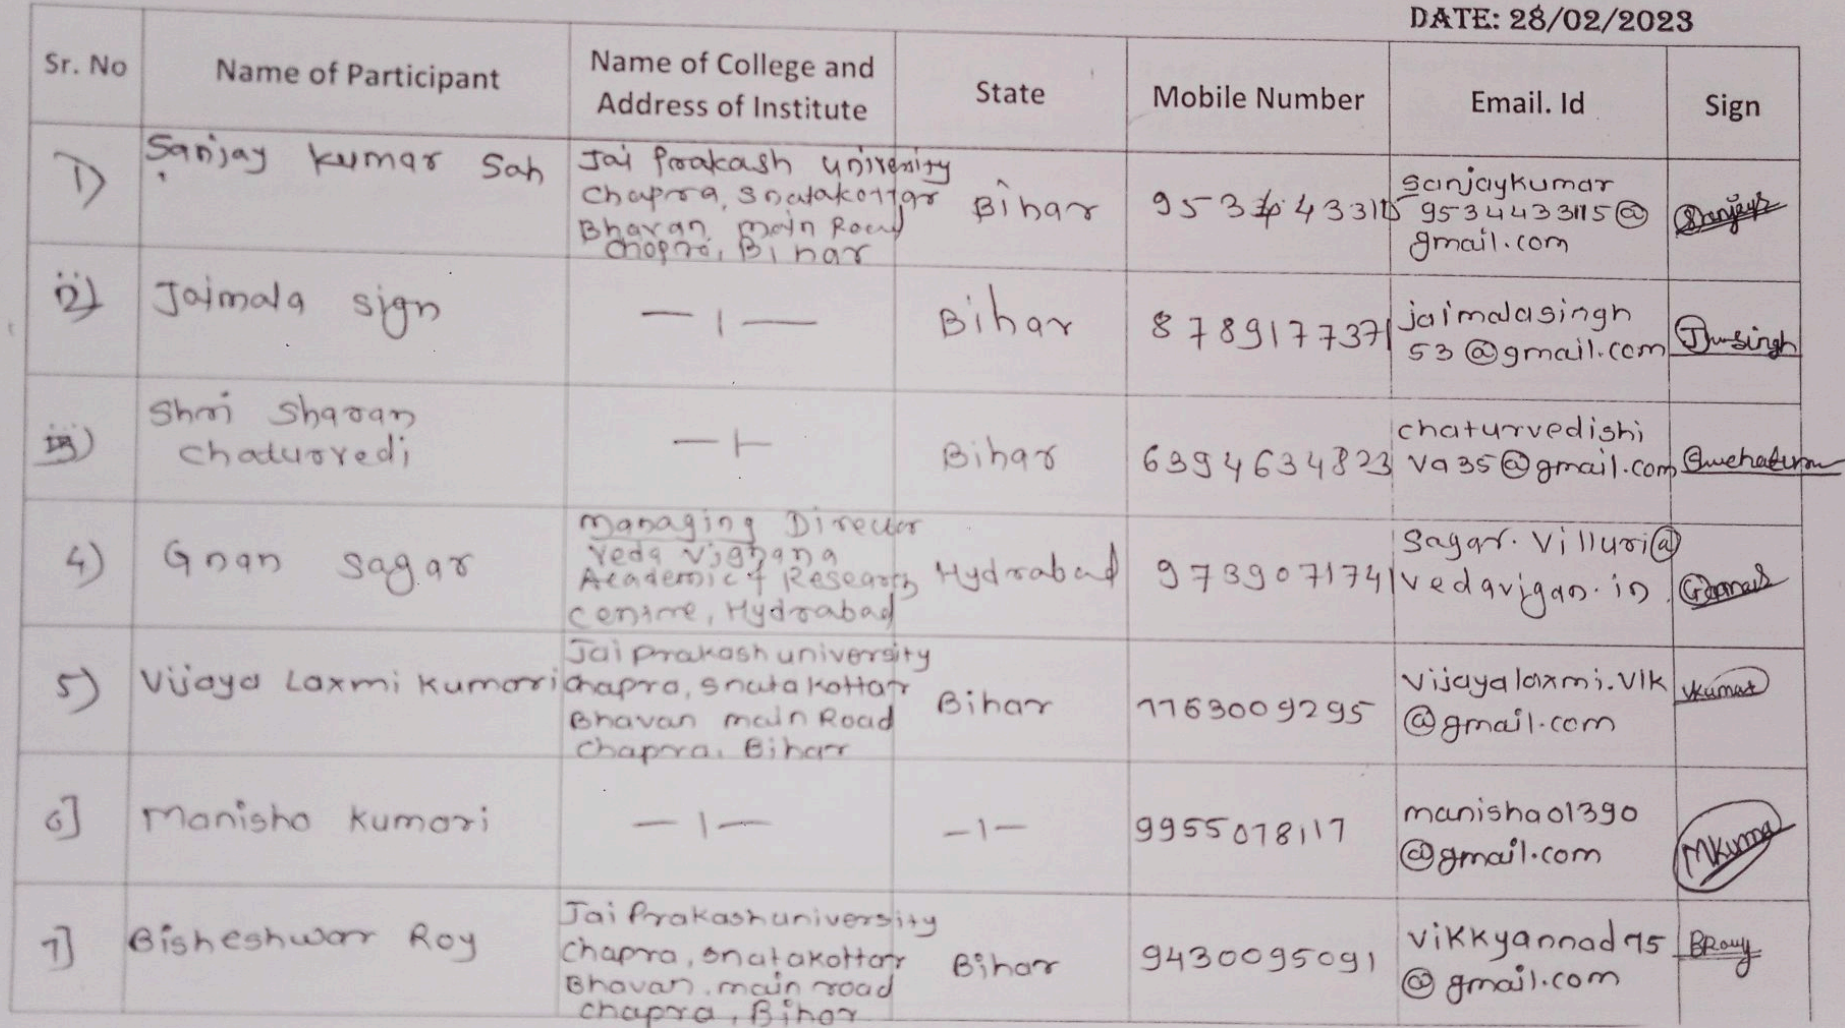 DATE: 28/02/2023
Sr. No
Name of Participant
Name of College and
Address of Institute
State
Mobile Number
Email. Id
Sign
1)
Sanjay Kumar Sah
Jai Prakash University
Chapra, Snatakottar
Bhavan, main Road
Chapra, Bihar
Bihar
9534433115
sanjaykumar
9534433115@
gmail.com
Sanjays
2)
Jaimala sign
—ı—
Bihar
8789177371
jaimalasingh
53@gmail.com
singh
3)
Shri Sharan
Chaturvedi
—ı—
Bihar
6394634823
chaturvedishi
va35@gmail.com
4)
Gnan Sagar
Managing Director
Veda Vignana
Academic & Research
Centre, Hydrabad
Hydrabad
9739071741
Sagar.Villuri@
vedavigan.in
5)
Vijaya Laxmi Kumari
Jai Prakash university
Chapra, Snatakottar
Bhavan main Road
Chapra, Bihar
Bihar
7763009295
vijayalaxmi.vlk
@gmail.com
VKumari
6]
Manisha Kumari
—ı—
—ı—
9955078117
manisha01390
@gmail.com
MKuma
7]
Bisheshwar Roy
Jai Prakash university
Chapra, Snatakottar
Bhavan, main road
Chapra, Bihar
Bihar
9430095091
vikkyannad75
@gmail.com
BRouy